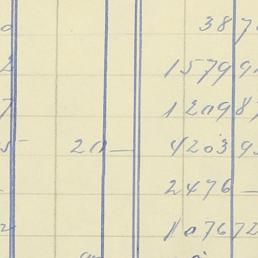 387
2 15799
7 120987
5 20 — 420395
2476 —
2 107672